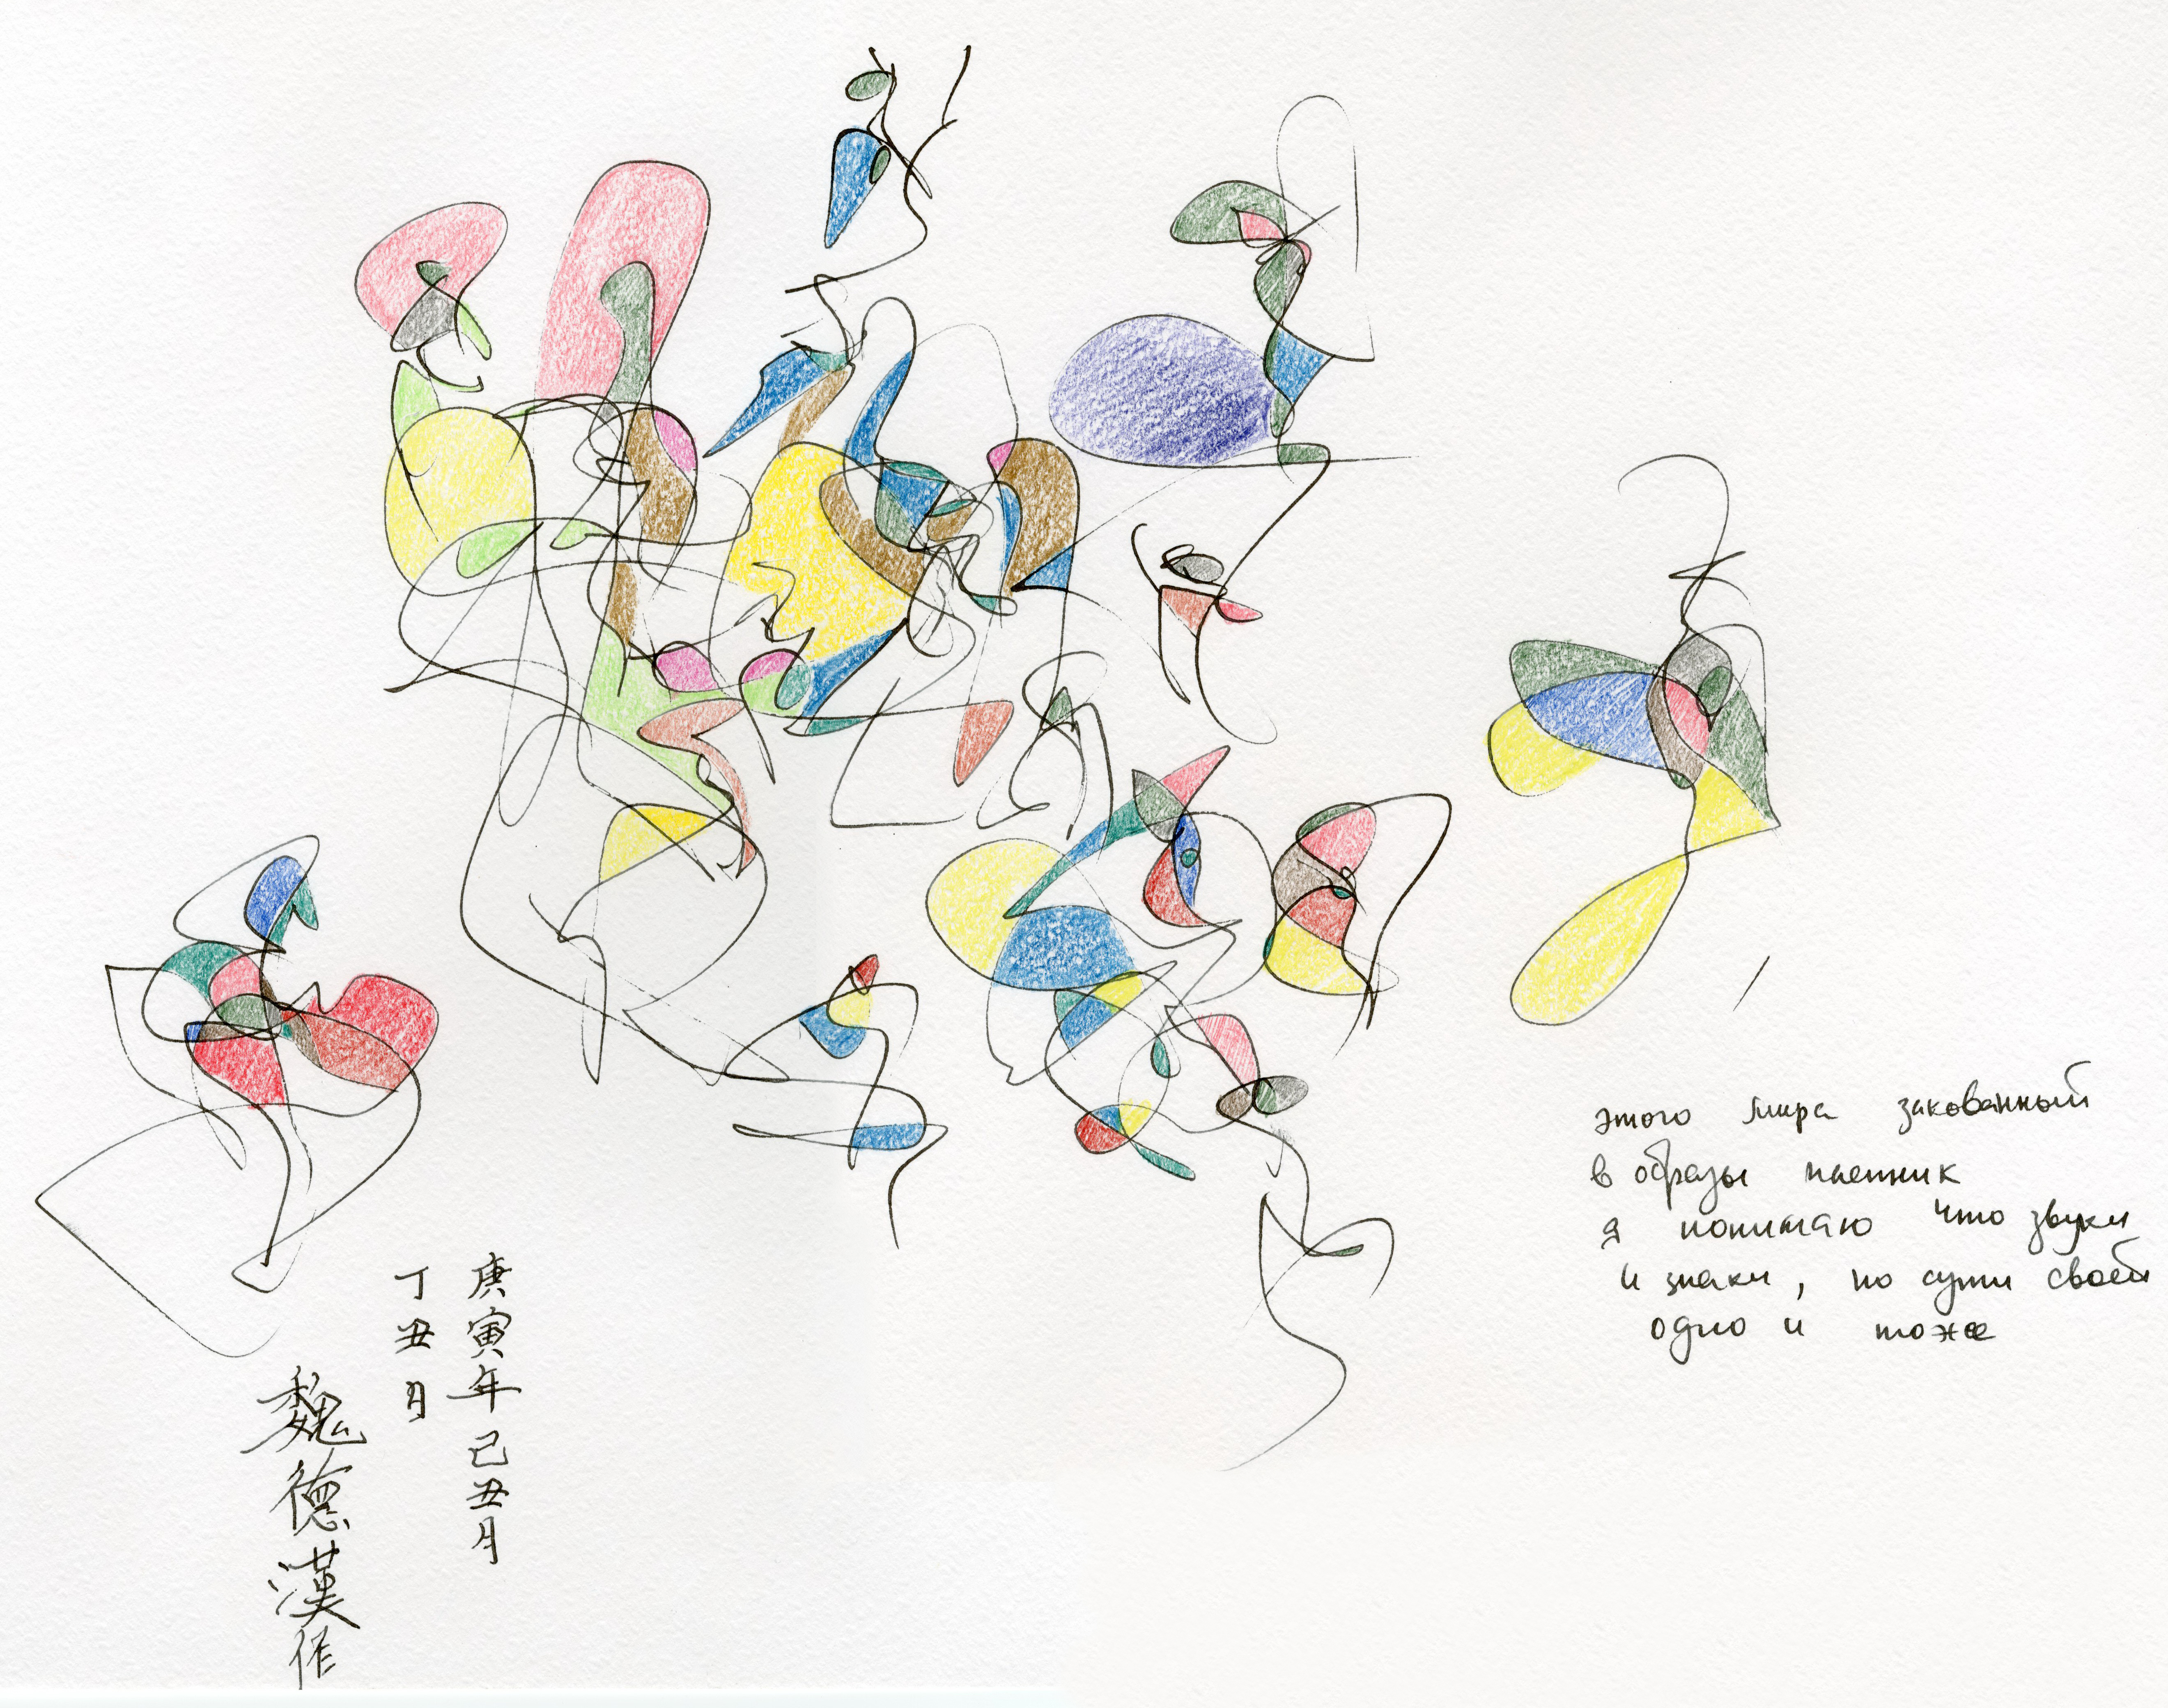 этого мира закованный
в образы пленник
я понимаю что звуки
и знаки, по сути своей
одно и тоже
庚寅年己丑月
丁丑月
魏德漢作